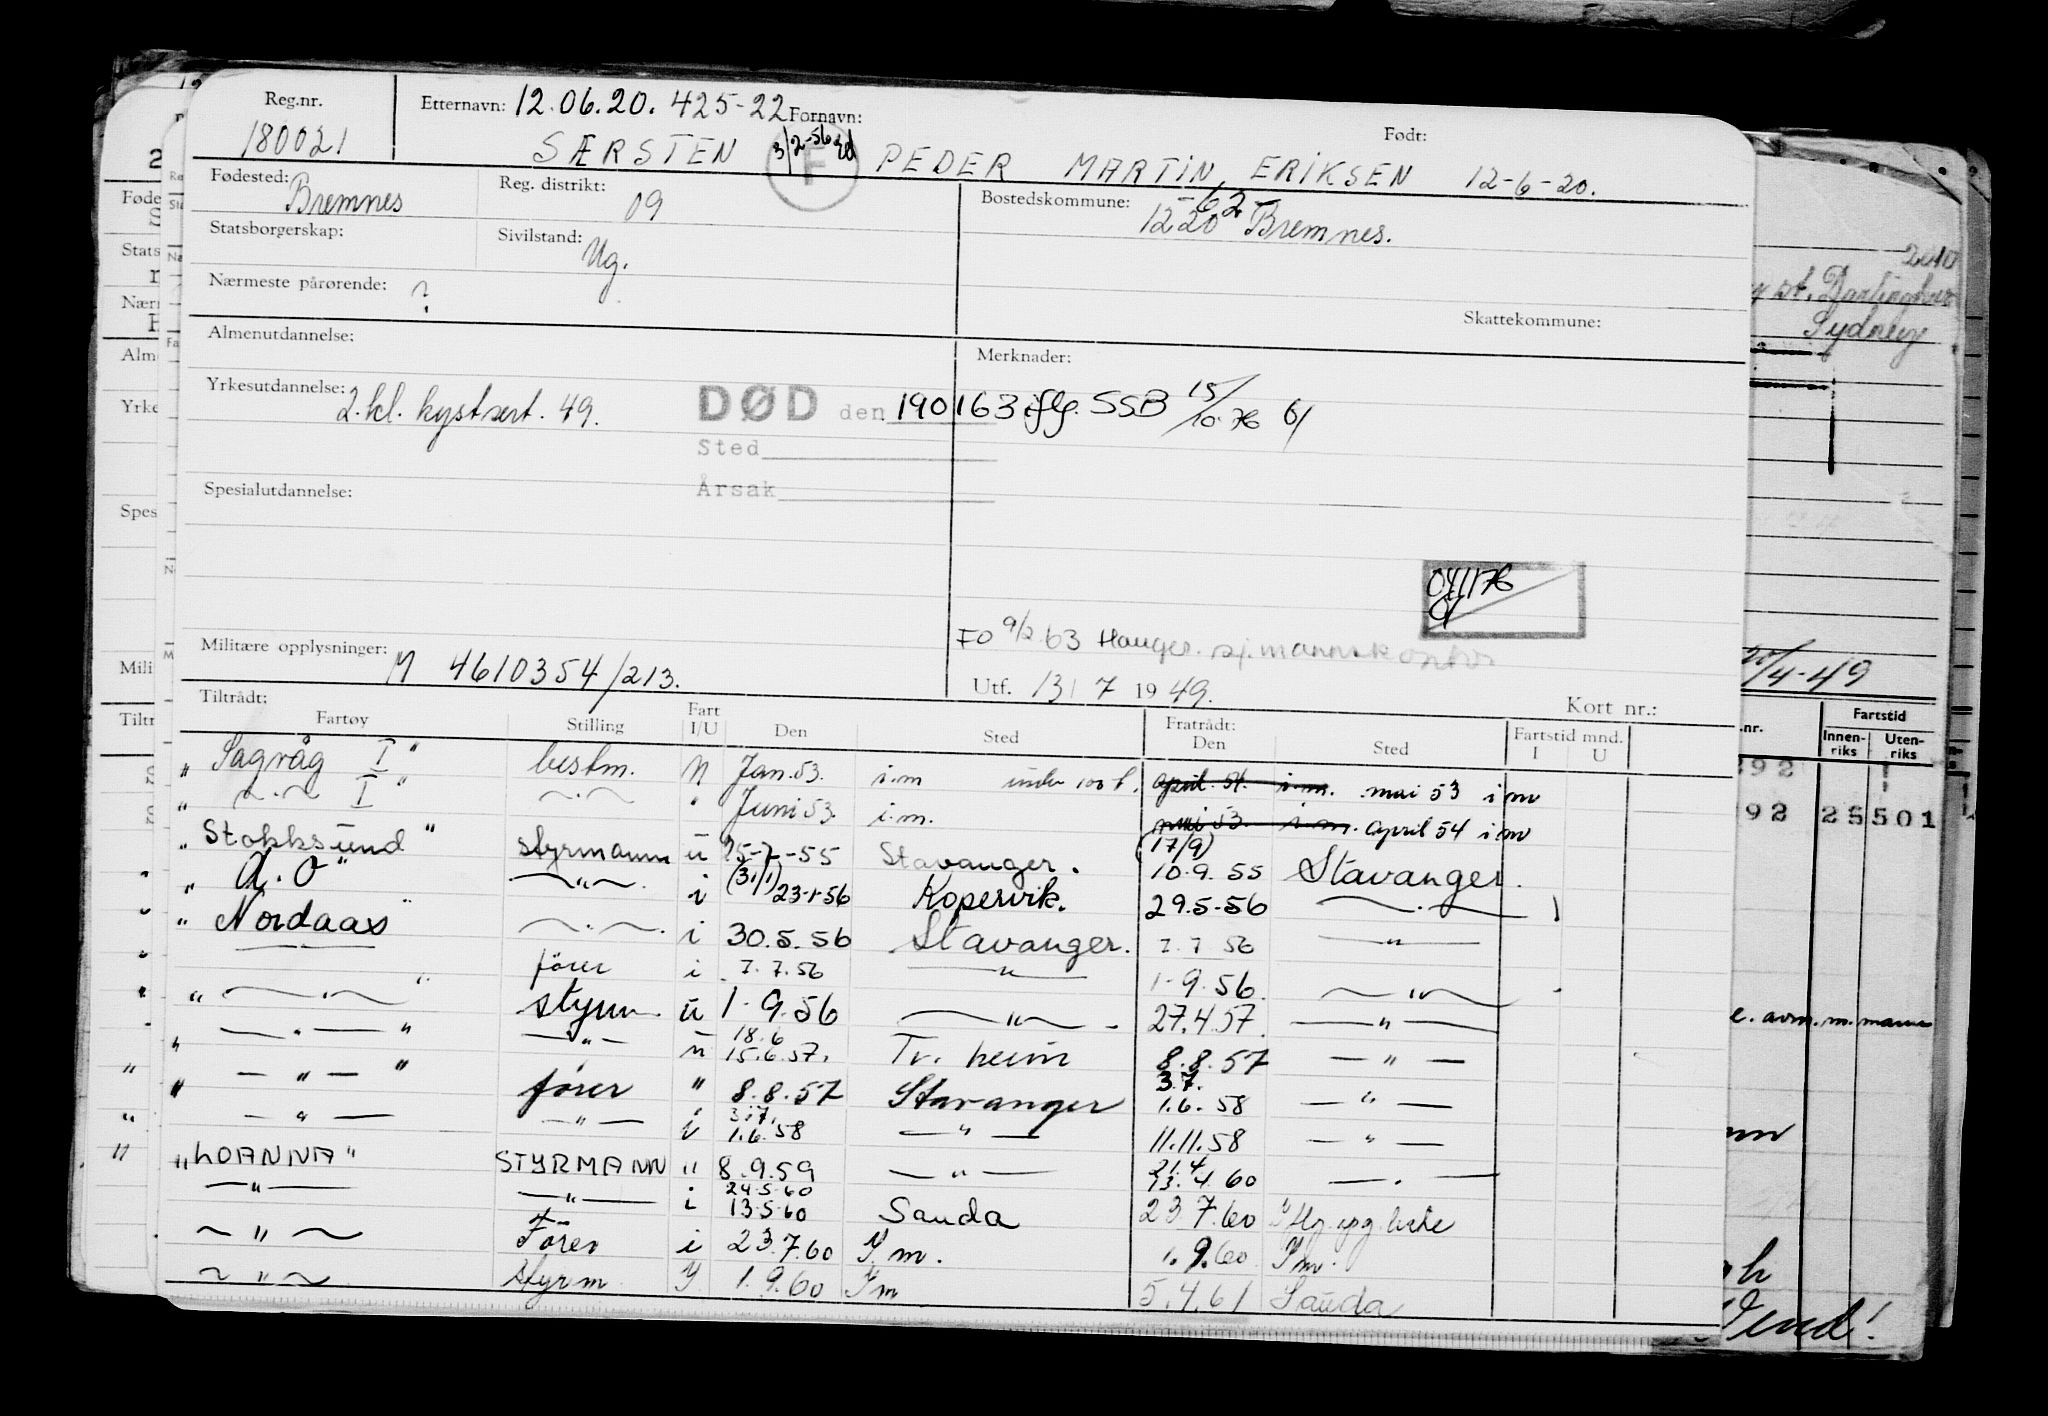 Reg.nr. 180021
Etternavn: 12.06.20. 425-22 Fornavn: Født:
SÆRSTEN 3/2-56 F PEDER MARTIN ERIKSEN 12-6-20.
Fødested: Bremnes Reg. distrikt: 09 Bostedskommune: -62-
1220 Bremnes.
Statsborgerskap: Sivilstand: Ug.
Nærmeste pårørende: ?
Skattekommune:
Almenutdannelse: Merknader:
Yrkesutdannelse: 2. kl. kystsert. 49. DØD den 190163 iflg. SSB 15/10-76
Sted
Årsak
Spesialutdannelse:
041176
FO 9/2 63 Hauges. sj.mannskontor
Militære opplysninger: M 4610354/213.
Utf. 13/7 1949. Kort nr.:
Tiltrådt: Fratrådt:
Fartøy Stilling Fart I/U Den Sted Den Sted Fartstid mnd. I U
" Sagvåg I " bestm. N Jan. 53. i.m under 100 t. april. 54. i.m. mai 53 im
" ~.~ I " ~.~ " Juni 53. i.m. mai 53. i.m. april 54 im
" Stokksund " styrmann u 25-7-55 Stavanger. (17/9) 10.9.55 Stavanger.
" A.O " ~"~ i (31/1) 23-1-56 Kopervik. 29.5-56 ~.~
" Nordaas " ~.~ i 30.5.56 Stavanger. 7.7 56 —"—
fører i 7.7.56 —"— 1-9.56 ~"~
" ~.~ " styrm. u 1-9.56 ~"~ 27.4.57. —"—
" —"— " —"— u 18.6 15.6.57. Tr. heim 8.8.57 —"—
" —"— " fører " 8.8.57 Stavanger 3.7. 1.6.58 —"—
—"— —"— i 3.7. 1.6.58 —"— 11.11.58 —"—
" LOANNA " STYRMANN " 8.9.59 —"— 21.4 13.4.60 —.—
—"— —"— i 24.5.60 13.5.60 Sauda 23 7.60
~"~ Fører i 23.7.60 I m. 1.9.60 I m.
~"~ styrm. I 1.9.60 I m 5.4.61 Sauda
2010
Darlinghurst
Sydney
20/4-49
Fartstid
Innen-riks Uten-riks
392
392 25 501
Vend!